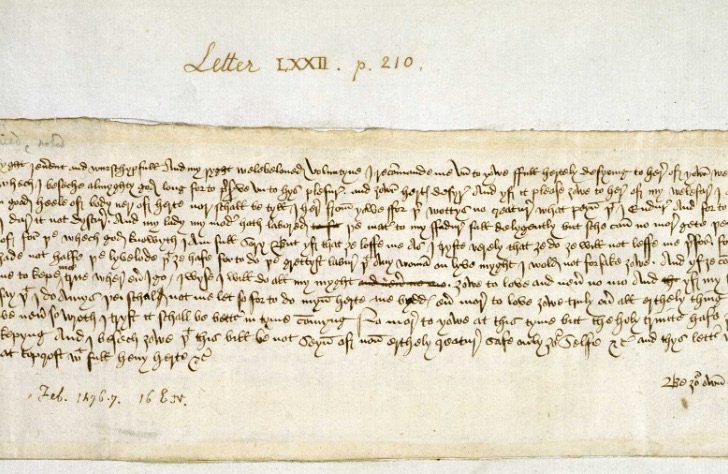 Letter LXXII. p. 210.
reverent and wurschypfull And my ryght welebeloued Voluntyne I recomande me vn to yowe full hertely desyring to here of yowr
whech I beseche almyghty god long for to preserve vn to hys plesur and yowr herts desyr And yf it please yowe to here of my welefar I
good heele of body ner of herte nor schall be tyll I her from yowe for þer wottys no creatur what peyn þat I endur And for to
I dar it not dyscur And my lady my moder hath labored þe mater to my fadur full delygently but sche can no mor gete
of for þe whech god knowyth I Am full sory But yf that ye loffe me As I tryste verely that ye do ye will not leffe me þerfor
hade not halfe þe lyvelode þat ye hafe for to do þe grettyst labur þat Any woman on lyve myght I wold not forsake yowe And yf ye
me to kepe me true wher euer I go I wyse I will do all my myght yowe to love and neuer no mo And yf my
say þat I do Amys þei schal not me let so for to do myn herte me bydds euer mor to love yowe truly ouer all erthely thing
be neuer so wroth I tryst it schall be better in tyme comyng No mor to yowe at this tyme but the holy trinite hafe
kepyng And I besech yowe þat this bill be not seyn of non erthely creatur safe only yowr selfe &c And thys letter
at topcroft wt full heuy herte &c
Be yowr own
Feb. 1476-7. 16 E.